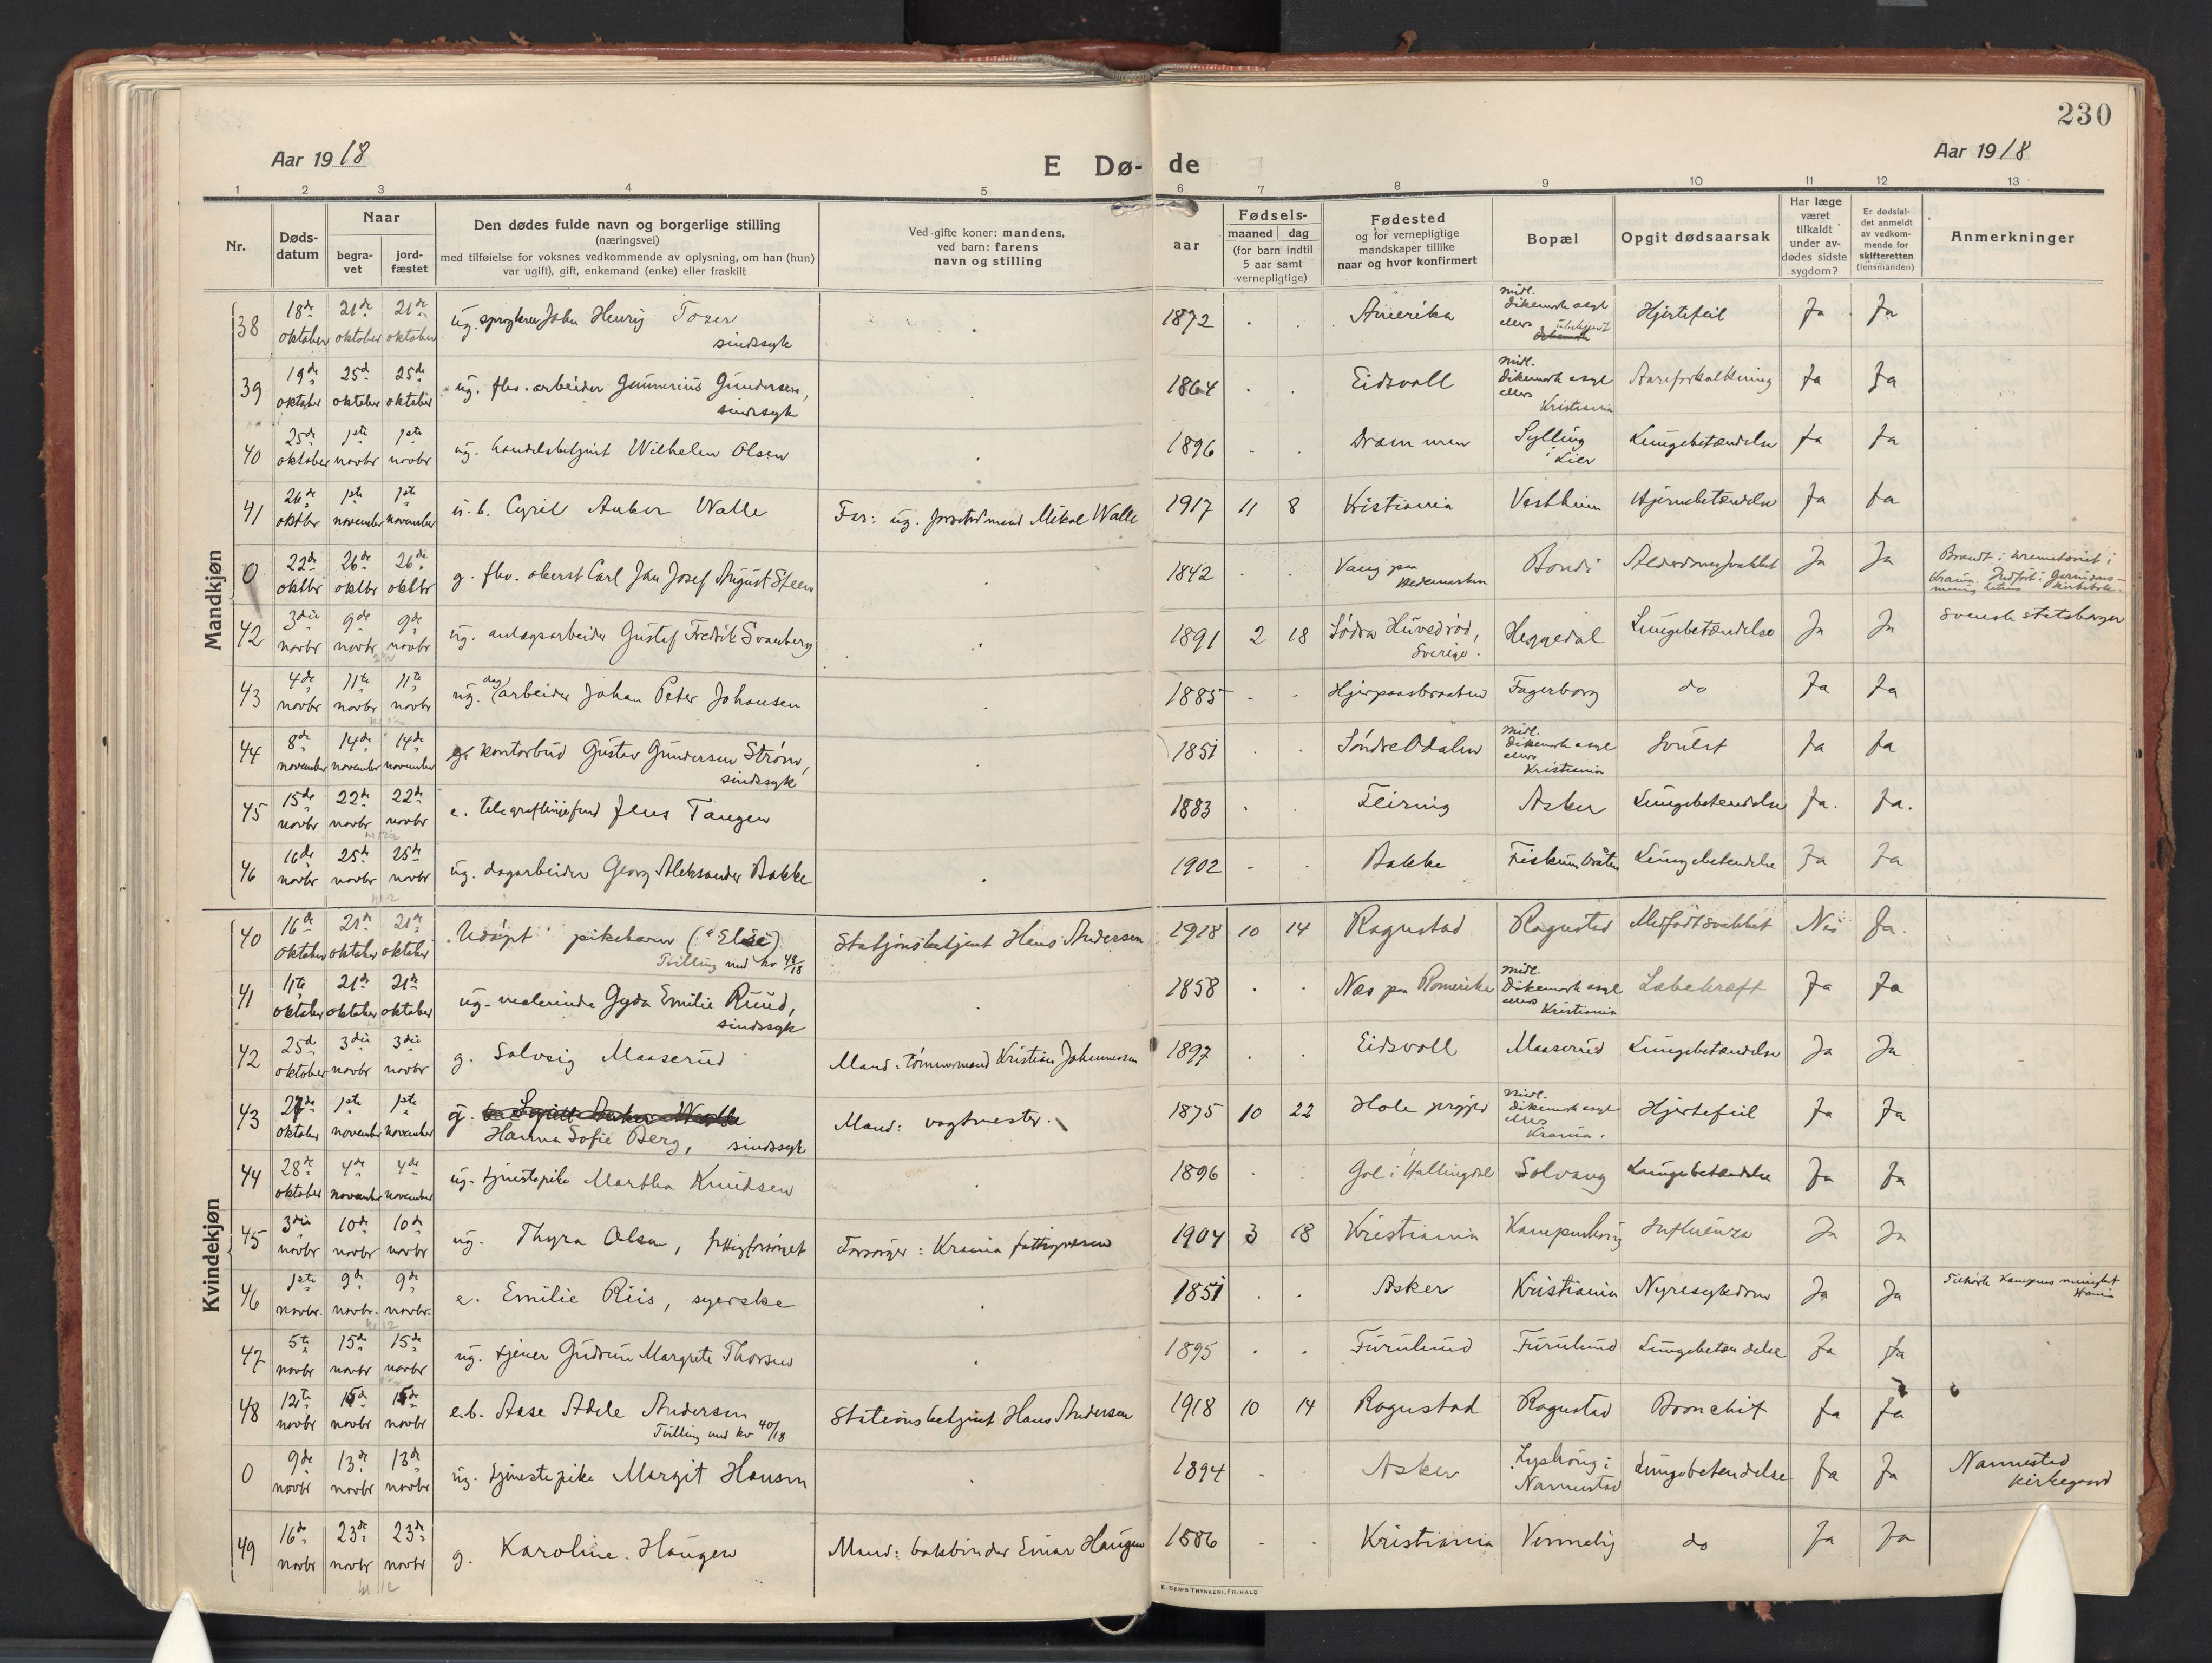 230
Aar 1918
E Dø- de
Aar 1918
1 2 3 4 5 6 7 8 9 10 11 12 13
Nr.
Døds-
datum
Naar
begra-
vet
jord-
fæstet
Den dødes fulde navn og borgerlige stilling
(næringsvei)
med tilføielse for voksnes vedkommende av oplysning, om han (hun)
var ugift), gift, enkemand (enke) eller fraskilt
Ved gifte koner: mandens,
ved barn: farens
navn og stilling
Fødsels-
aar
maaned dag
(for barn indtil
5 aar samt
vernepligtige)
Fødested
og for vernepligtige
mandskaper tillike
naar og hvor konfirmert
Bopæl
Opgit dødsaarsak
Har læge
været
tilkaldt
under av-
dødes sidste
sygdom?
Er dødsfal-
det anmeldt
av vedkom-
mende for
skifteretten
(lensmanden)
Anmerkninger
Mandkjøn
38 18de oktober 21de oktober 21de oktober ug. John Henry Tozer sindssyk 1872 Amerika midl. Dikemark asyl ellers ubekjent Hjertefeil Ja Ja
39 19de oktober 25de oktober 25de oktober ug. fhv. arbeider Gunnerius Gundersen, sindssyk 1864 Eidsvoll midl. Dikemark asyl ellers Kristiania Aareforkalkning Ja Ja
40 25de oktober 1ste novbr 1ste novbr ug. handelsbetjent Wilhelm Olsen 1896 Drammen Sylling i Lier Lungebetændelse Ja Ja
41 26de oktbr 1ste november 1ste november u.b. Cyril Anker Walle Far: ug. Mikal Walle 1917 11 8 Kristiania Vestheim Hjernebetændelse Ja Ja
0 22de oktbr 26de oktbr 26de oktbr g. fhv. oberst Carl Jan Josef August Steen 1842 Vang paa Hedemarken Bondi Alderdomssvakhet Ja Ja Brændt i krematoriet i Krania. Indført i Garnisons- menighetens kirkebok.
42 3die novbr 9de novbr 9de novbr ug. anlægsarbeider Gustaf Fredrik Svanberg 1891 2 18 Södra Huvedröd, Sverige. Heggedal Lungebetændelse Ja Ja svensk statsborger
43 4de novbr 11te novbr 11te novbr ug. dag arbeider Johan Peter Johansen 1885 Fagerborg do Ja Ja
44 8de november 14de november 14de november g. kontorbud Gustav Gundersen Strøm, sindssyk 1851 Søndre Odalen midl. Dikemark asyl ellers Kristiania Svulst Ja Ja
45 15de novbr 22de novbr 22de novbr e. Jens Tangen 1883 Feiring Asker Lungebetændelse Ja. Ja.
46 16de novbr 25de novbr 25de novbr ug. dagarbeider Georg Aleksander Bakke 1902 Bakke Fiskumbråten Lungebetændelse Ja Ja
Kvindekjøn
40 16de oktober 21de oktober 21de oktober "Udøpt" pikebarn ("Else) Tvilling med kv 48/18 Stasjonsbetjent Hans Andersen 1918 10 14 Ragnstad Ragnstad Medfødt svakhet Nei Ja.
41 11te oktober 21de oktober 21de oktober ug. væverinde Gyda Emilie Ruud, sindssyk 1858 Næs paa Romerike midl. Dikemark asyl ellers Kristiania Labekræft Ja Ja
42 25de oktober 3die novbr 3die novbr g. Solveig Maaserud Mand: tømmermand Kristian Johannessen 1897 Eidsvoll Maaserud Lungebetændelse Ja Ja
43 oktober 1ste november 1ste november g. Hanna Sofie Berg, sindssyk Mand: vagtmester. 1875 10 22 Hole prgjeld midl. Dikemark asyl ellers Krania. Hjertefeil Ja Ja
44 28de oktober 4de november 4de november ug. tjenestepike Martha Knudsen 1896 Gol i Hallingdal Solvang Lungebetændelse Ja Ja
45 3die novbr 10de novbr 10de novbr ug. Thyra Olsen, fattigforsørget Forsørger: Krania fattigvæsen 1904 3 18 Kristiania Kampenhaug Influenza Ja Ja
46 1ste novbr. 9de novbr. 9de novbr. e. Emilie Riis, syerske 1851 Asker Kristiania Nyresykdom Ja Ja Tilhørte Kampens menighet Krania
47 5te novbr 15de novbr 15de novbr ug. tjener Gudrun Margrete Thorsen 1895 Furulund Furulund Lungebetændelse Ja Ja
48 12te novbr 15de novbr 15de novbr e.b. Aase Adele Andersen Tvilling med kv 40/18 Stationsbetjent Hans Andersen 1918 10 14 Ragnstad Ragnstad Bronchit Ja Ja
0 9de novbr 13de novbr 13de novbr ug. tjenestepike Margit Hansen 1894 Asker Lyshaug i Nannestad Lungebetændelse Ja Ja Nannestad kirkegaard
49 16de novbr 23de novbr 23de novbr g. Karoline Haugen Mand: bokbinder Einar Haugen 1886 Kristiania Vennelig do Ja Ja
E. SEM'S TRYKKERI, FR.HALD